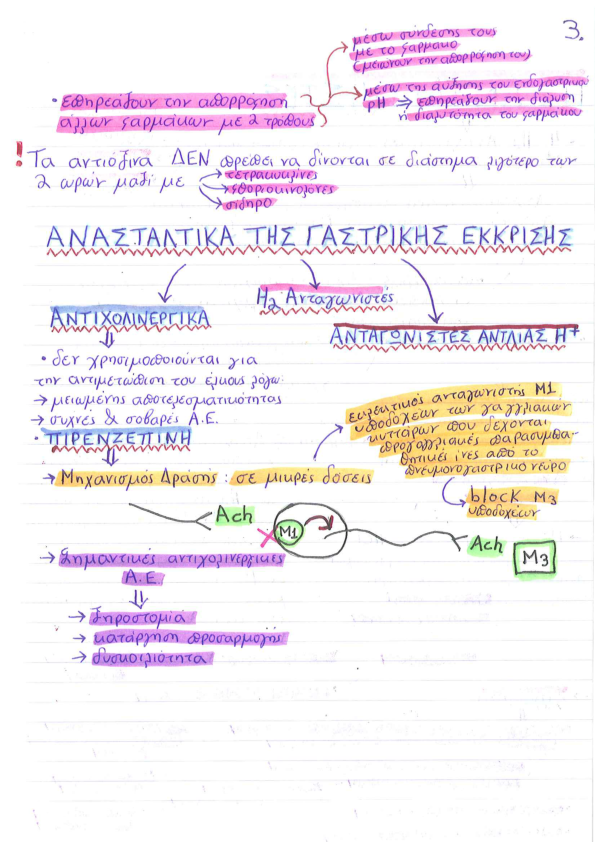 3.
μέσω σύνδεσής τους
με το φάρμακο
(μειώνουν την απορρόφησή του)
μέσω της αύξησης του ενδογαστρικού
pH ⇒ επηρεάζουν την διάλυση
ή διαλυτότητα του φαρμάκου
• επηρεάζουν την απορρόφηση
άλλων φαρμάκων με 2 τρόπους
! Τα αντιόξινα ΔΕΝ πρέπει να δίνονται σε διάστημα λιγότερο των
2 ωρών μαζί με → τετρακυκλίνες
→ φθοριοκινολόνες
→ σίδηρο
ΑΝΑΣΤΑΛΤΙΚΑ ΤΗΣ ΓΑΣΤΡΙΚΗΣ ΕΚΚΡΙΣΗΣ
ΑΝΤΙΧΟΛΙΝΕΡΓΙΚΑ
H2 Ανταγωνιστές
ΑΝΤΑΓΩΝΙΣΤΕΣ ΑΝΤΛΙΑΣ Η+
• δεν χρησιμοποιούνται για
την αντιμετώπιση του έλκους λόγω:
→ μειωμένης αποτελεσματικότητας
→ συχνές & σοβαρές Α.Ε.
• ΠΙΡΕΝΖΕΠΙΝΗ
→ Μηχανισμός Δράσης: σε μικρές δόσεις
εκλεκτικός ανταγωνιστής Μ1
υποδοχέων των γαγγλιακών
κυττάρων που δέχονται
προγαγγλιακές παρασυμπα-
θητικές ίνες από το
πνευμονογαστρικό νεύρο
→ block M3
υποδοχέων
Ach
M1
Ach
M3
→ Σημαντικές αντιχολινεργικές
Α.Ε.
→ ξηροστομία
→ κατάργηση προσαρμογής
→ δυσκοιλιότητα